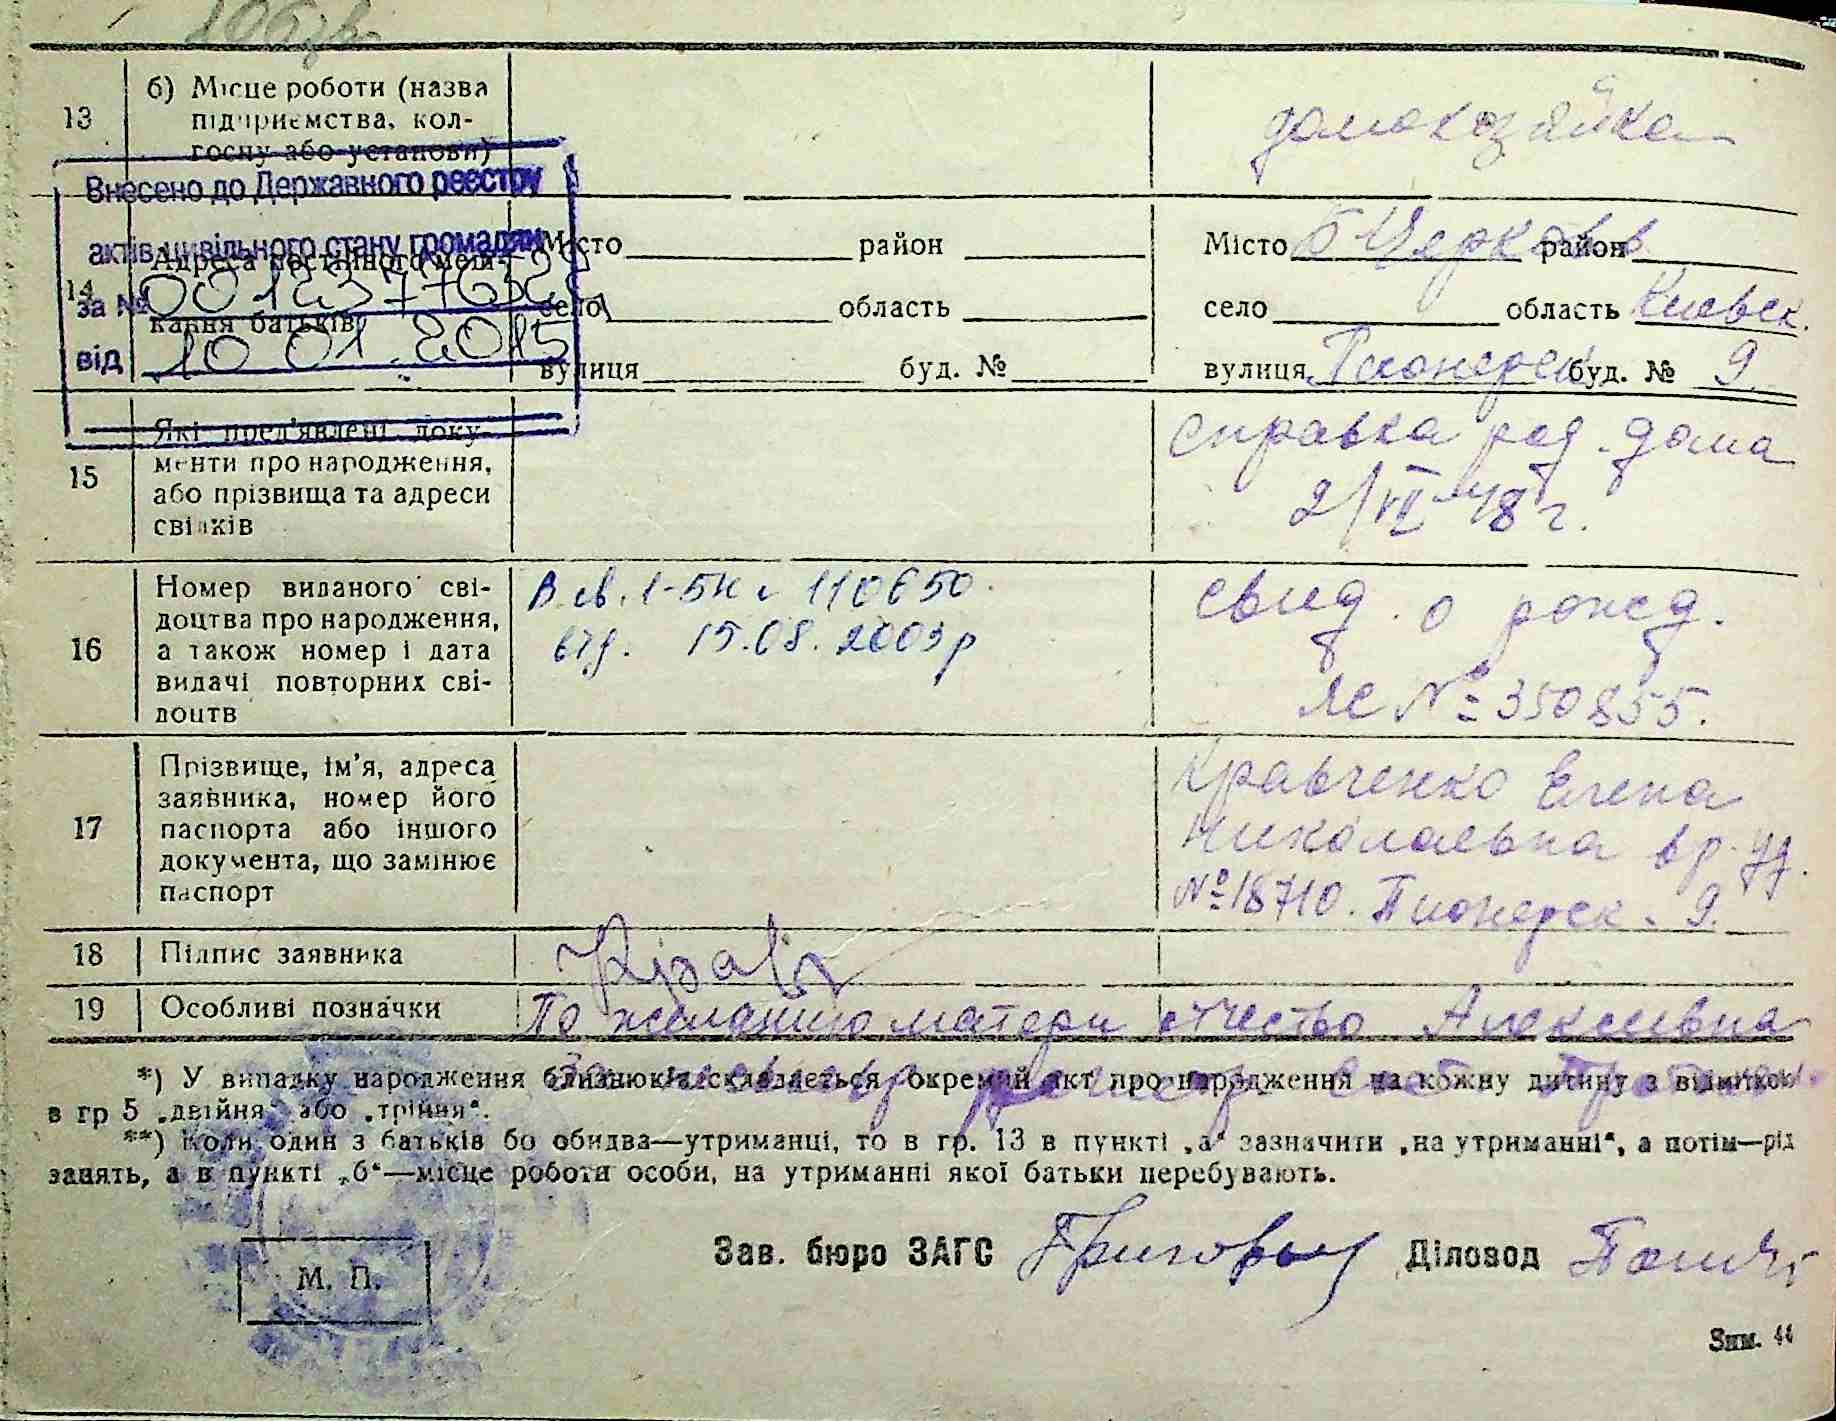 13
б) Місце роботи (назва
підприємства, кол-
госпу або установи)
домохозяйка
Внесено до Державного реєстру
актів цивільного стану громадян
за №
від 10 01. 2015
14
Адреса постійного меш-
кання батьків
Місто район
село область
вулиця буд. №
Місто Б Церковь район
село область Киевск.
вулиця Пионерск буд. № 9.
15
Які пред'явлені доку-
менти про народження,
або прізвища та адреси
свідків
справка род. дома
2/VII-48 г.
16
Номер виданого сві-
доцтва про народження,
а також номер і дата
видачі повторних сві-
доцтв
110650.
від. 15.08.2003р
свид. о рожд.
ЯС № 350855.
17
Прізвище, ім'я, адреса
заявника, номер його
паспорта або іншого
документа, що замінює
паспорт
Кравченко Елена
Николаевна вр. уд.
№ 18710. Пионерск. 9.
18
Підпис заявника
Крав
19
Особливі позначки
По желанию матери отчество Алексеевна
*) У випадку народження близнюків складається окремий акт про народження на кожну дитину з відміткою
в гр 5 „двійня“ або „трійня“.
**) Коли один з батьків бо обидва—утриманці, то в гр. 13 в пункті „а“ зазначити „на утриманні“, а потім—рід
занять, а в пункті „б“—місце роботи особи, на утриманні якої батьки перебувають.
Зав. бюро ЗАГС
Діловод
М. П.
Зим. 44